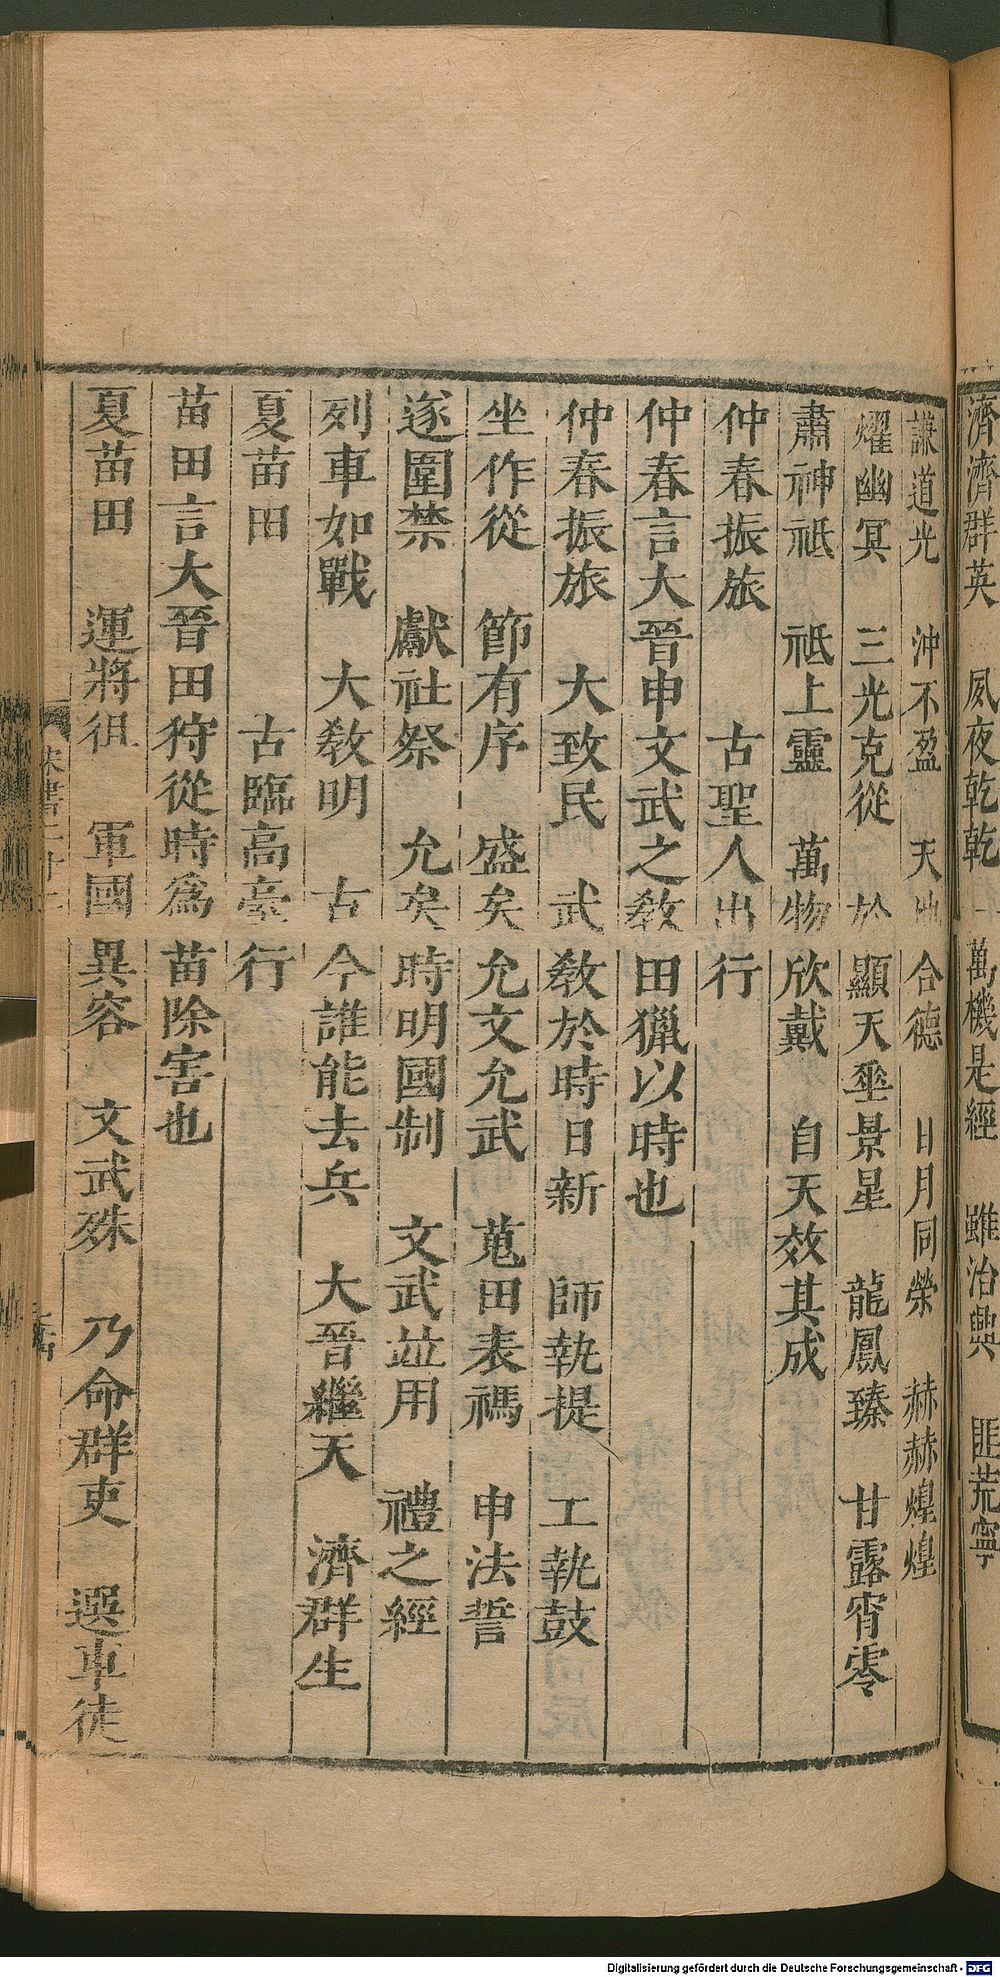 濟濟群英　夙夜乾乾　萬機是經　雖治興　匪荒寧
謙道光　沖不盈　天地合德　日月同榮　赫赫煌煌
燿幽冥　三光克從　於顯天垂景星　龍鳳臻　甘露宵零
肅神祇　祗上靈　萬物欣戴　自天效其成
仲春振旅　古聖人出行
仲春言大晉申文武之教田獵以時也
仲春振旅　大致民　武教於時日新　師執提　工執鼓
坐作從　節有序　盛矣允文允武　蒐田表禡　申法誓
遂圍禁　獻社祭　允矣時明國制　文武並用　禮之經
列車如戰　大教明　古今誰能去兵　大晉繼天　濟群生
夏苗田　古臨高臺行
苗田言大晉田狩從時爲苗除害也
夏苗田　運將徂　軍國異容　文武殊　乃命群吏　選車徒
宋書二十二
Digitalisierung gefördert durch die Deutsche Forschungsgemeinschaft - DFG